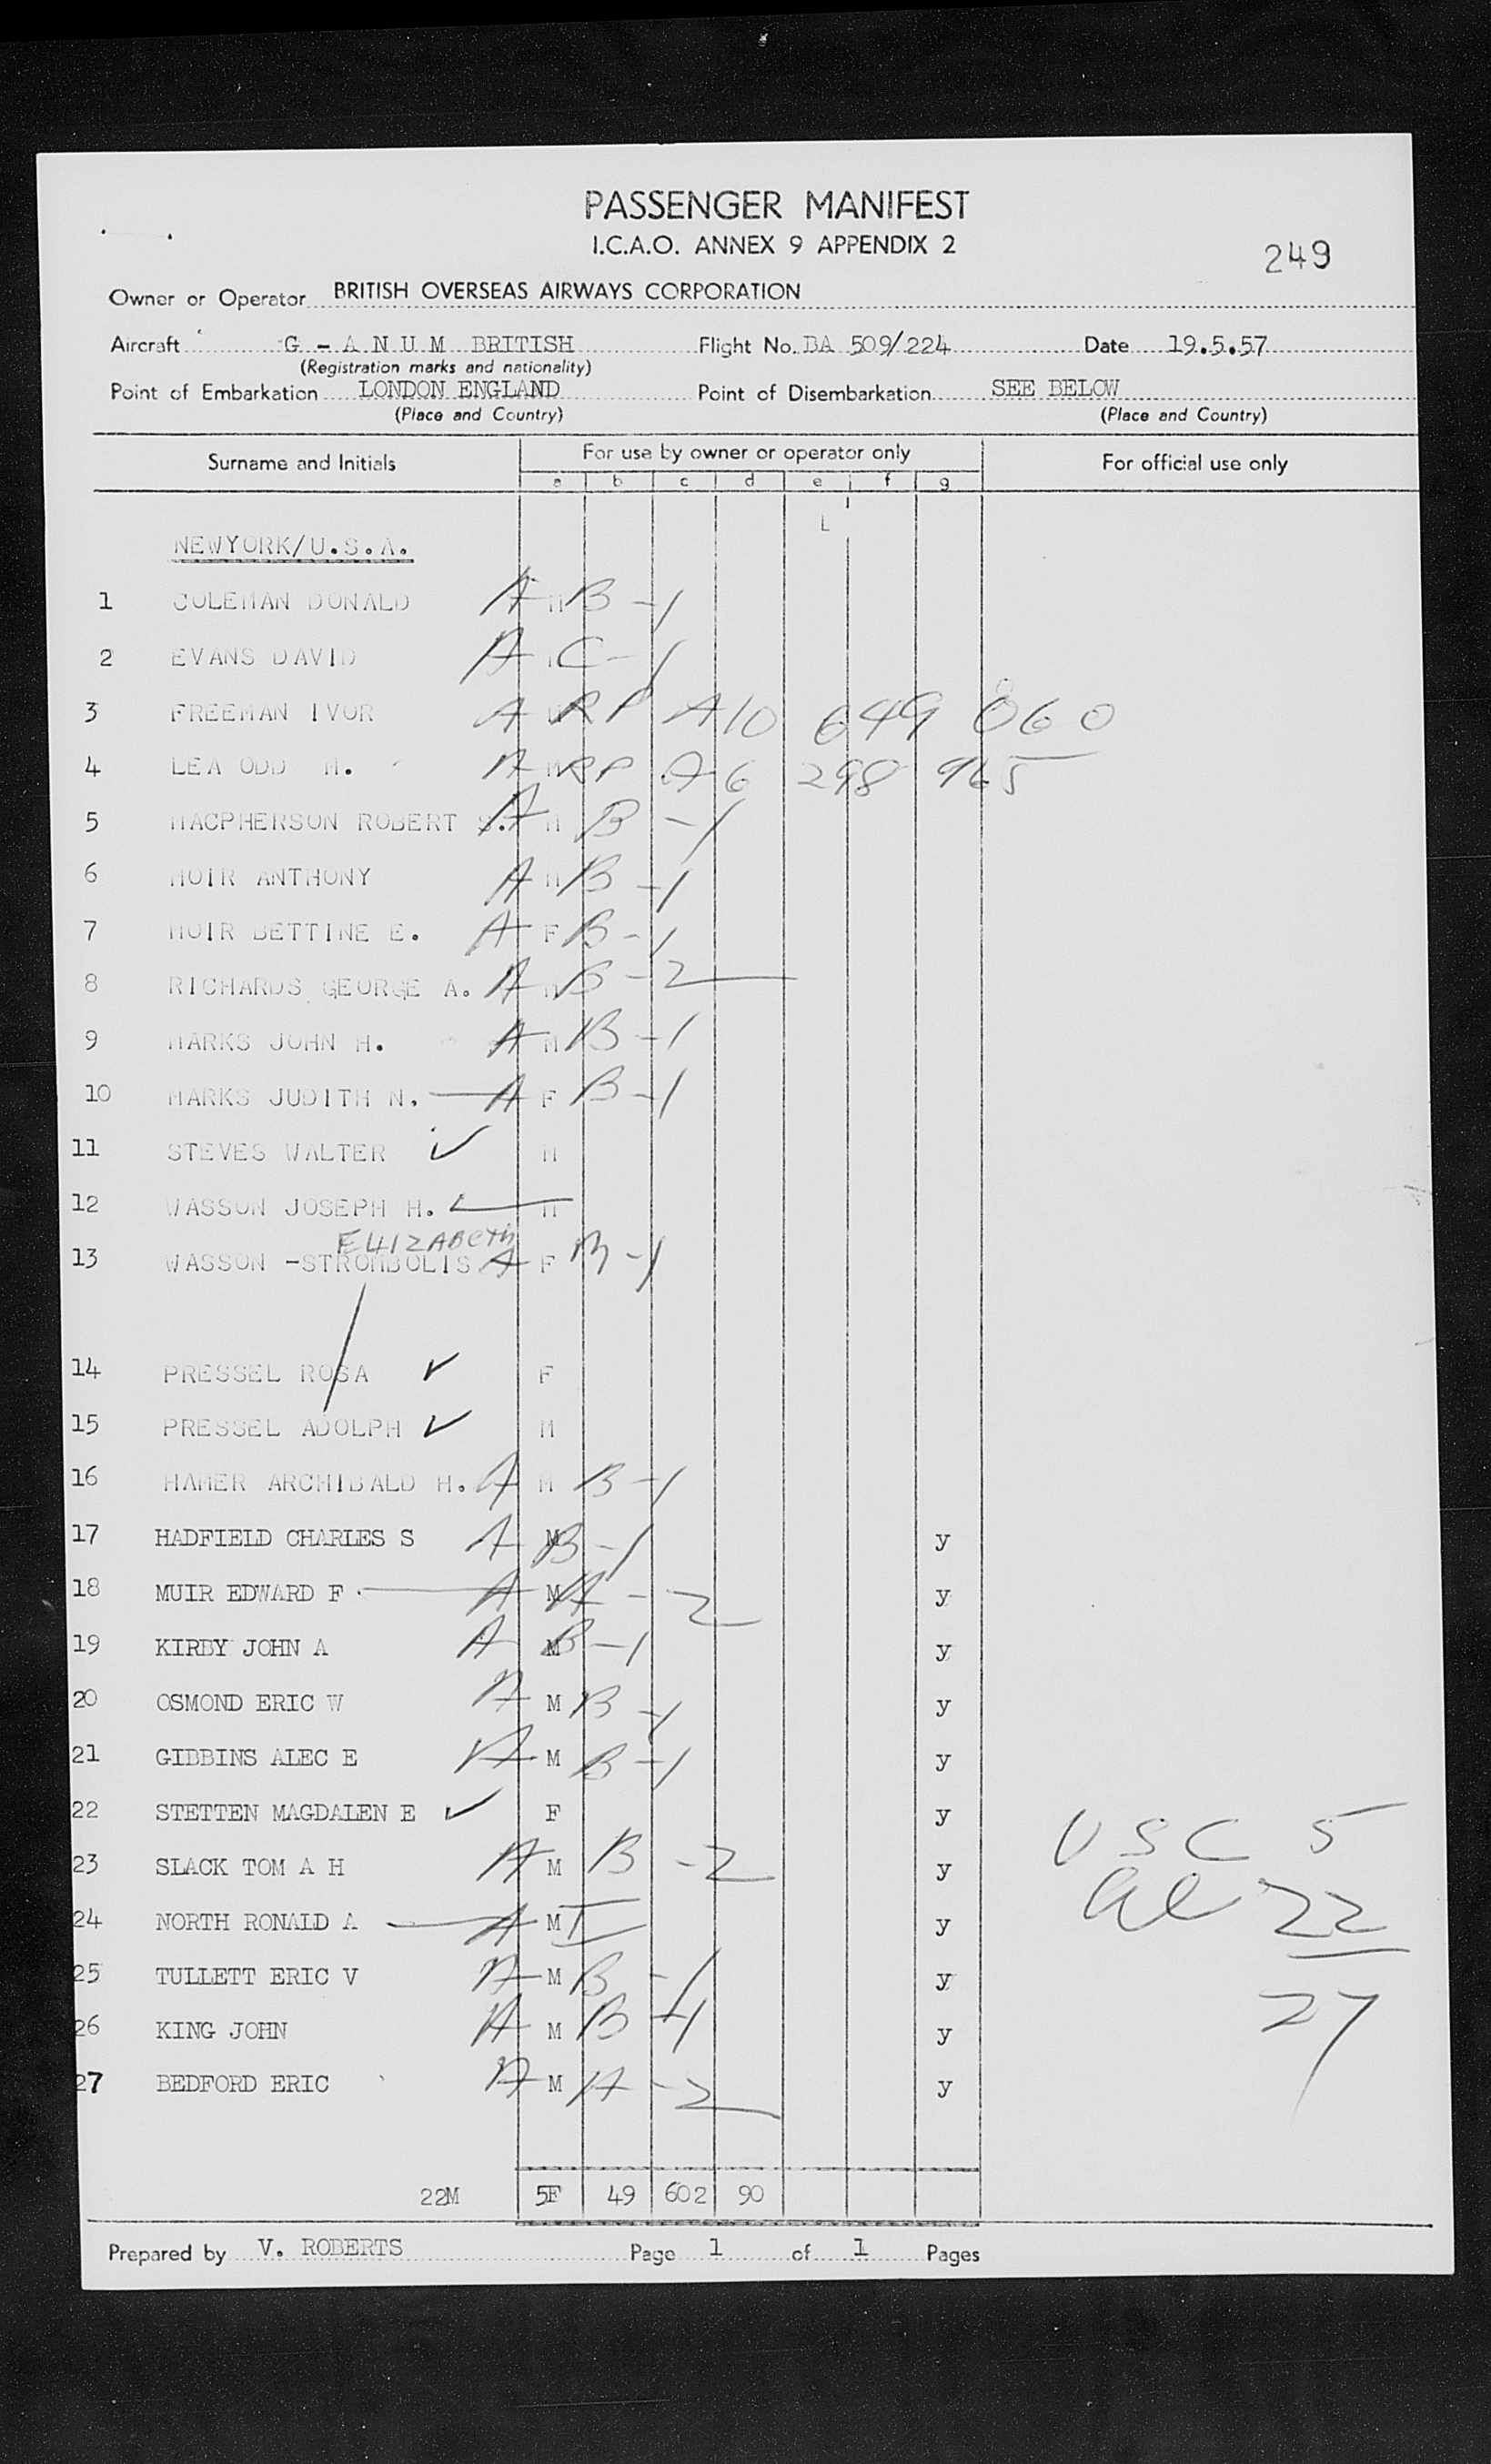 PASSENGER MANIFEST
I.C.A.O. ANNEX 9 APPENDIX 2
249
Owner or Operator BRITISH OVERSEAS AIRWAYS CORPORATION
Aircraft G - A N U M BRITISH Flight No. BA 509/224 Date 19.5.57
(Registration marks and nationality)
Point of Embarkation LONDON ENGLAND Point of Disembarkation SEE BELOW
(Place and Country) (Place and Country)
Surname and Initials For use by owner or operator only For official use only
a b c d e f g
L
NEWYORK/U.S.A.
1 COLEMAN DONALD A M B-1
2 EVANS DAVID A C-1
3 FREEMAN IVOR A M RP A10 649 060
4 LEA ODD M. A M RP A6 298 965
5 MACPHERSON ROBERT S. A M B-1
6 MOIR ANTHONY A M B-1
7 MOIR BETTINE E. A F B-1
8 RICHARDS GEORGE A. A M B-2
9 MARKS JOHN H. A M B-1
10 MARKS JUDITH N. A F B-1
11 STEVES WALTER ✓ M
12 WASSON JOSEPH H. ✓ M
ELIZABETH
13 WASSON -STROMBOLIS A F B-1
14 PRESSEL ROSA ✓ F
15 PRESSEL ADOLPH ✓ M
16 HAMER ARCHIBALD H. A M B-1
17 HADFIELD CHARLES S A M B-1 y
18 MUIR EDWARD F A M A-2 y
19 KIRBY JOHN A A M B-1 y
20 OSMOND ERIC W A M B-1 y
21 GIBBINS ALEC E A M B-1 y
22 STETTEN MAGDALEN E ✓ F y
USC 5
23 SLACK TOM A H A M B-2 y
al 22
24 NORTH RONALD A A M I y
25 TULLETT ERIC V A M B-1 y
27
26 KING JOHN A M B-1 y
27 BEDFORD ERIC A M A-2 y
22M 5F 49 602 90
Prepared by V. ROBERTS Page 1 of 1 Pages